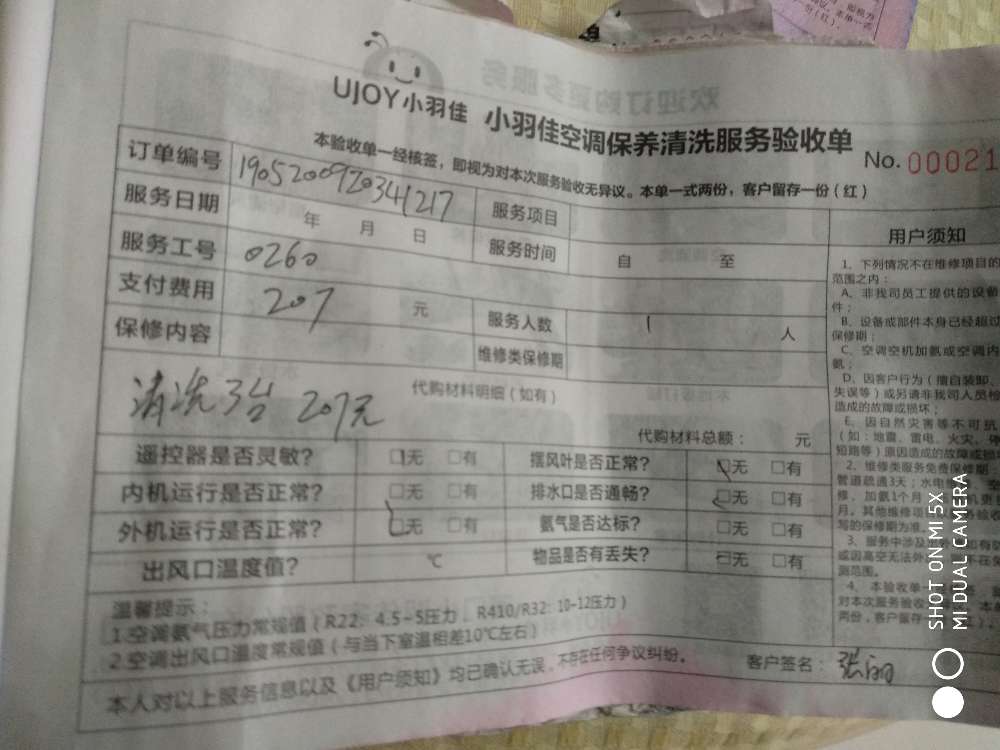 UJOY小羽佳 小羽佳空调保养清洗服务验收单
No. 00021
本验收单一经核签，即视为对本次服务验收无异议。本单一式两份，客户留存一份（红）
订单编号 1905200920341217 服务项目
服务日期 年 月 日 服务时间 自 至
服务工号 0260
支付费用 207 元 服务人数 1 人
保修内容 维修类保修期
清洗3台 207元 代购材料明细（如有）
代购材料总额： 元
遥控器是否灵敏? □无 □有 摆风叶是否正常? □无 □有
内机运行是否正常? □无 □有 排水口是否通畅? □无 □有
外机运行是否正常? □无 □有 氨气是否达标? □无 □有
出风口温度值? ℃ 物品是否有丢失? □无 □有
温馨提示：
1.空调氨气压力常规值（R22：4.5-5压力，R410/R32：10-12压力）
2.空调出风口温度常规值（与当下室温相差10℃左右）
本人对以上服务信息以及《用户须知》均已确认无误，不存在任何争议纠纷。 客户签名：张丽
用户须知
1、下列情况不在维修项目的
范围之内：
A、非我司员工提供的设备
件；
B、设备或部件本身已经超过
保修期；
C、空调空机加氨或空调内
氨；
D、因客户行为（擅自装卸、
失误等）或另请非我司人员检
造成的故障或损坏；
E、因自然灾害等不可抗
（如：地震、雷电、火灾、
短路等）原因造成的故障或损坏
2、维修类服务免费保修期
管道疏通3天；水电维
修、加氨1个月
月。其他维修项
写的保修期为准。
3、服务中涉及
或因高空无法外
测范围。
4、本验收单
对本次服务验收
两份，客户留存
SHOT ON MI 5X
MI DUAL CAMERA